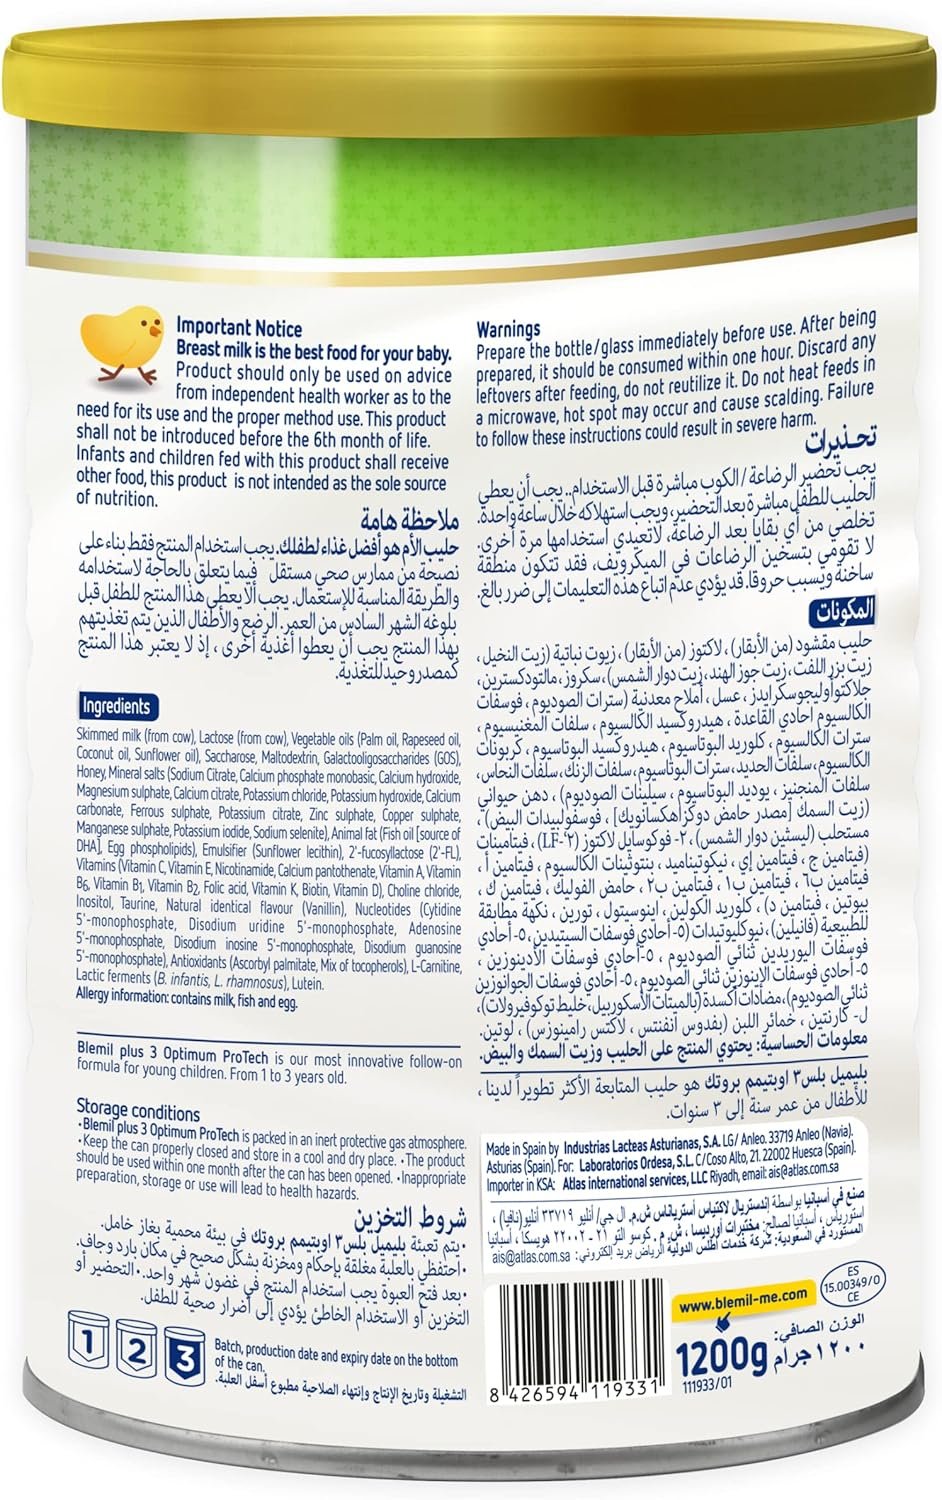 Important Notice
Breast milk is the best food for your baby.
Product should only be used on advice
from independent health worker as to the
need for its use and the proper method use. This product
shall not be introduced before the 6th month of life.
Infants and children fed with this product shall receive
other food, this product is not intended as the sole source
of nutrition.
ملاحظة هامة
حليب الأم هو أفضل غذاء لطفلك. يجب استخدام المنتج فقط بناء على
نصيحة من ممارس صحي مستقل فيما يتعلق بالحاجة لاستخدامه
والطريقة المناسبة للإستعمال. يجب ألا يعطى هذا المنتج للطفل قبل
بلوغه الشهر السادس من العمر. الرضع والأطفال الذين يتم تغذيتهم
بهذا المنتج يجب أن يعطوا أغذية أخرى ، إذ لا يعتبر هذا المنتج
كمصدر وحيد للتغذية.
Ingredients
Skimmed milk (from cow), Lactose (from cow), Vegetable oils (Palm oil, Rapeseed oil,
Coconut oil, Sunflower oil), Saccharose, Maltodextrin, Galactooligosaccharides (GOS),
Honey, Mineral salts (Sodium Citrate, Calcium phosphate monobasic, Calcium hydroxide,
Magnesium sulphate, Calcium citrate, Potassium chloride, Potassium hydroxide, Calcium
carbonate, Ferrous sulphate, Potassium citrate, Zinc sulphate, Copper sulphate,
Manganese sulphate, Potassium iodide, Sodium selenite), Animal fat (Fish oil [source of
DHA], Egg phospholipids), Emulsifier (Sunflower lecithin), 2'-fucosyllactose (2'-FL),
Vitamins (Vitamin C, Vitamin E, Nicotinamide, Calcium pantothenate, Vitamin A, Vitamin
B6, Vitamin B1, Vitamin B2, Folic acid, Vitamin K, Biotin, Vitamin D), Choline chloride,
Inositol, Taurine, Natural identical flavour (Vanillin), Nucleotides (Cytidine
5'-monophosphate, Disodium uridine 5'-monophosphate, Adenosine
5'-monophosphate, Disodium inosine 5'-monophosphate, Disodium guanosine
5'-monophosphate), Antioxidants (Ascorbyl palmitate, Mix of tocopherols), L-Carnitine,
Lactic ferments (B. infantis, L. rhamnosus), Lutein.
Allergy information: contains milk, fish and egg.
Blemil plus 3 Optimum ProTech is our most innovative follow-on
formula for young children. From 1 to 3 years old.
Storage conditions
•Blemil plus 3 Optimum ProTech is packed in an inert protective gas atmosphere.
•Keep the can properly closed and store in a cool and dry place. •The product
should be used within one month after the can has been opened. •Inappropriate
preparation, storage or use will lead to health hazards.
شروط التخزين
•يتم تعبئة بليميل بلس٣ اوبتيمم بروتك في بيئة محمية بغاز خامل.
•احتفظي بالعلبة مغلقة بإحكام ومخزنة بشكل صحيح في مكان بارد وجاف.
•بعد فتح العبوة يجب استخدام المنتج في غضون شهر واحد. •التحضير أو
التخزين أو الاستخدام الخاطئ يؤدي إلى أضرار صحية للطفل.
1 2 3
Batch, production date and expiry date on the bottom
of the can.
التشغيلة وتاريخ الإنتاج وإنتهاء الصلاحية مطبوع أسفل العلبة.
Warnings
Prepare the bottle/glass immediately before use. After being
prepared, it should be consumed within one hour. Discard any
leftovers after feeding, do not reutilize it. Do not heat feeds in
a microwave, hot spot may occur and cause scalding. Failure
to follow these instructions could result in severe harm.
تحـذيرات
يجب تحضير الرضاعة / الكوب مباشرة قبل الاستخدام.. يجب أن يعطي
الحليب للطفل مباشرة بعد التحضير، ويجب استهلاكه خلال ساعة واحدة.
تخلصي من أي بقايا بعد الرضاعة، لاتعيدي استخدامها مرة أخرى.
لا تقومي بتسخين الرضاعات في الميكرويف، فقد تتكون منطقة
ساخنة ويسبب حروقا. قد يؤدي عدم اتباع هذه التعليمات إلى ضرر بالغ.
المكونات
حليب مقشود (من الأبقار)، لاكتوز (من الأبقار) ، زيوت نباتية (زيت النخيل،
زيت بزر اللفت، زيت جوز الهند، زيت دوار الشمس)، سكروز، مالتودكسترين،
جلاكتوأوليجوسكرايدز، عسل ، أملاح معدنية (سترات الصوديوم ، فوسفات
الكالسيوم احادي القاعدة ، هيدروكسيد الكالسيوم ، سلفات المغنيسيوم ،
سترات الكالسيوم ، كلوريد البوتاسيوم ، هيدروكسيد البوتاسيوم ، كربونات
الكالسيوم، سلفات الحديد، سترات البوتاسيوم ، سلفات الزنك، سلفات النحاس،
سلفات المنجنيز ، يوديد البوتاسيوم ، سيلينات الصوديوم) ، دهن حيواني
(زيت السمك [مصدر حامض دوكزاهكسانويك] ، فوسفوليبدات البيض) ،
مستحلب (ليستين دوار الشمس) ، ٢- فوكوسايل لاكتوز (٢-LF) ، فيتامينات
(فيتامين ج ، فيتامين إي ، نيكوتيناميد ، بنتوثينات الكالسيوم ، فيتامين أ ،
فيتامين ب٦ ، فيتامين ب١ ، فيتامين ب٢ ، حامض الفوليك ، فيتامين ك ،
بيوتين ، فيتامين د) ، كلوريد الكولين ، اينوسيتول ، تورين ، نكهة مطابقة
للطبيعية (فانيلين)، نيوكليوتيدات (٥- أحادي فوسفات السيتيدين، ٥- أحادي
فوسفات اليوريدين ثنائي الصوديوم ، ٥-أحادي فوسفات الأدينوزين ،
٥- أحادي فوسفات الإينوزين ثنائي الصوديوم ، ٥- أحادي فوسفات الجوانوزين
ثنائي الصوديوم)، مضادات أكسدة (بالميتات الأسكوربيل، خليط توكوفيرولات)،
ل- كارنتين ، خمائر اللبن (بفدوس أنفنتس ، لاكتس رامينوزس) ، لوتين.
معلومات الحساسية: يحتوي المنتج على الحليب وزيت السمك والبيض.
بليميل بلس٣ اوبتيمم بروتك هو حليب المتابعة الأكثر تطويراً لدينا ،
للأطفال من عمر سنة إلى ٣ سنوات.
Made in Spain by Industrias Lacteas Asturianas, S.A. LG/ Anleo. 33719 Anleo (Navia).
Asturias (Spain). For: Laboratorios Ordesa, S.L. C/Coso Alto, 21. 22002 Huesca (Spain).
Importer in KSA: Atlas international services, LLC Riyadh, email: ais@atlas.com.sa
صنع في أسبانيا بواسطة إندستريال لاكتياس أستورياناس ش.م. ال جي/ أنليو ٣٣٧١٩ أنليو (نافيا) ،
استورياس ، أسبانيا لصالح: مختبرات أورديسا ، ش . م . كوسو التو ٢١ - ٢٢٠٠٢ هويسكا ، أسبانيا
المستورد في السعودية: شركة خدمات أطلس الدولية الرياض بريد إلكتروني: ais@atlas.com.sa
8 426594 119331
www.blemil-me.com
ES
15.00349/O
CE
1200g
111933/01
الوزن الصافي:
١٢٠٠ جرام